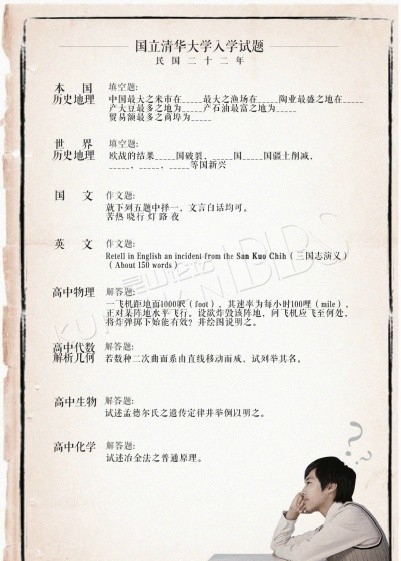 国立清华大学入学试题
民国二十二年
本国 填空题:
历史地理 中国最大之米市在_____最大之渔场在_____陶业最盛之地在_____
产大豆最多之地为_____产石油最富之地为_____
贸易额最多之商埠为_____
世界 填空题:
历史地理 欧战的结果_____国破裂，_____国_____国疆土削减，
_____，_____，_____等国新兴
国文 作文题:
就下列五题中择一，文言白话均可。
苦热 晓行 灯 路 夜
英文 作文题:
Retell in English an incident from the San Kuo Chih（三国志演义）
（About 150 words）
高中物理 解答题:
一飞机距地面1000呎（foot），其速率为每小时100哩（mile），
正对某阵地水平飞行。设欲炸毁该阵地，问飞机应飞至何处，
将炸弹掷下始能有效？并绘图说明之。
高中代数 解答题:
解析几何 若数种二次曲面系由直线移动而成，试列举其名。
高中生物 解答题:
试述孟德尔氏之遗传定律并举例以明之。
高中化学 解答题:
试述冶金法之普通原理。
? ? ?